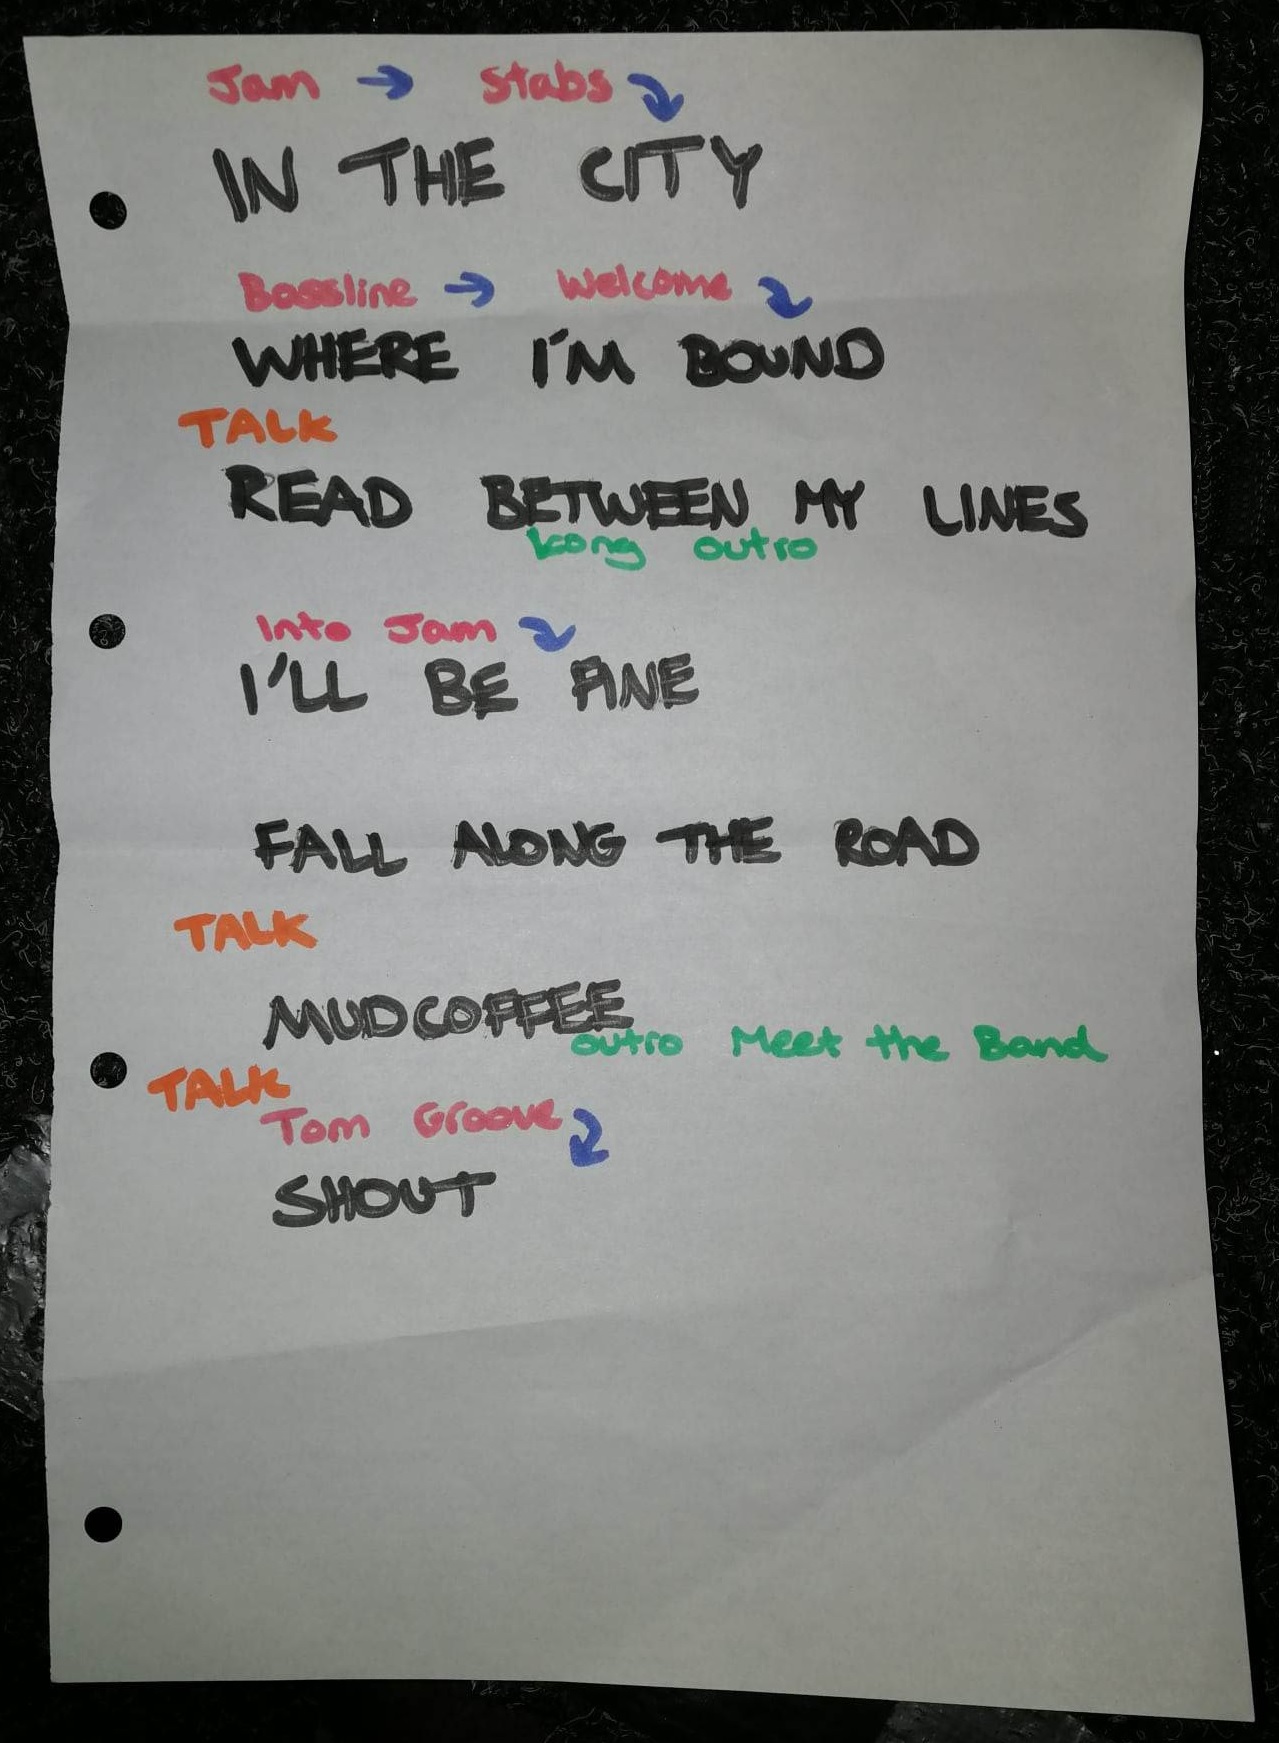 Jam → Stabs ↴
IN THE CITY
Bassline → Welcome ↴
WHERE I'M BOUND
TALK
READ BETWEEN MY LINES
Long outro
Into Jam ↴
I'LL BE FINE
FALL ALONG THE ROAD
TALK
MUDCOFFEE
outro Meet the Band
TALK
Tom Groove ↴
SHOUT